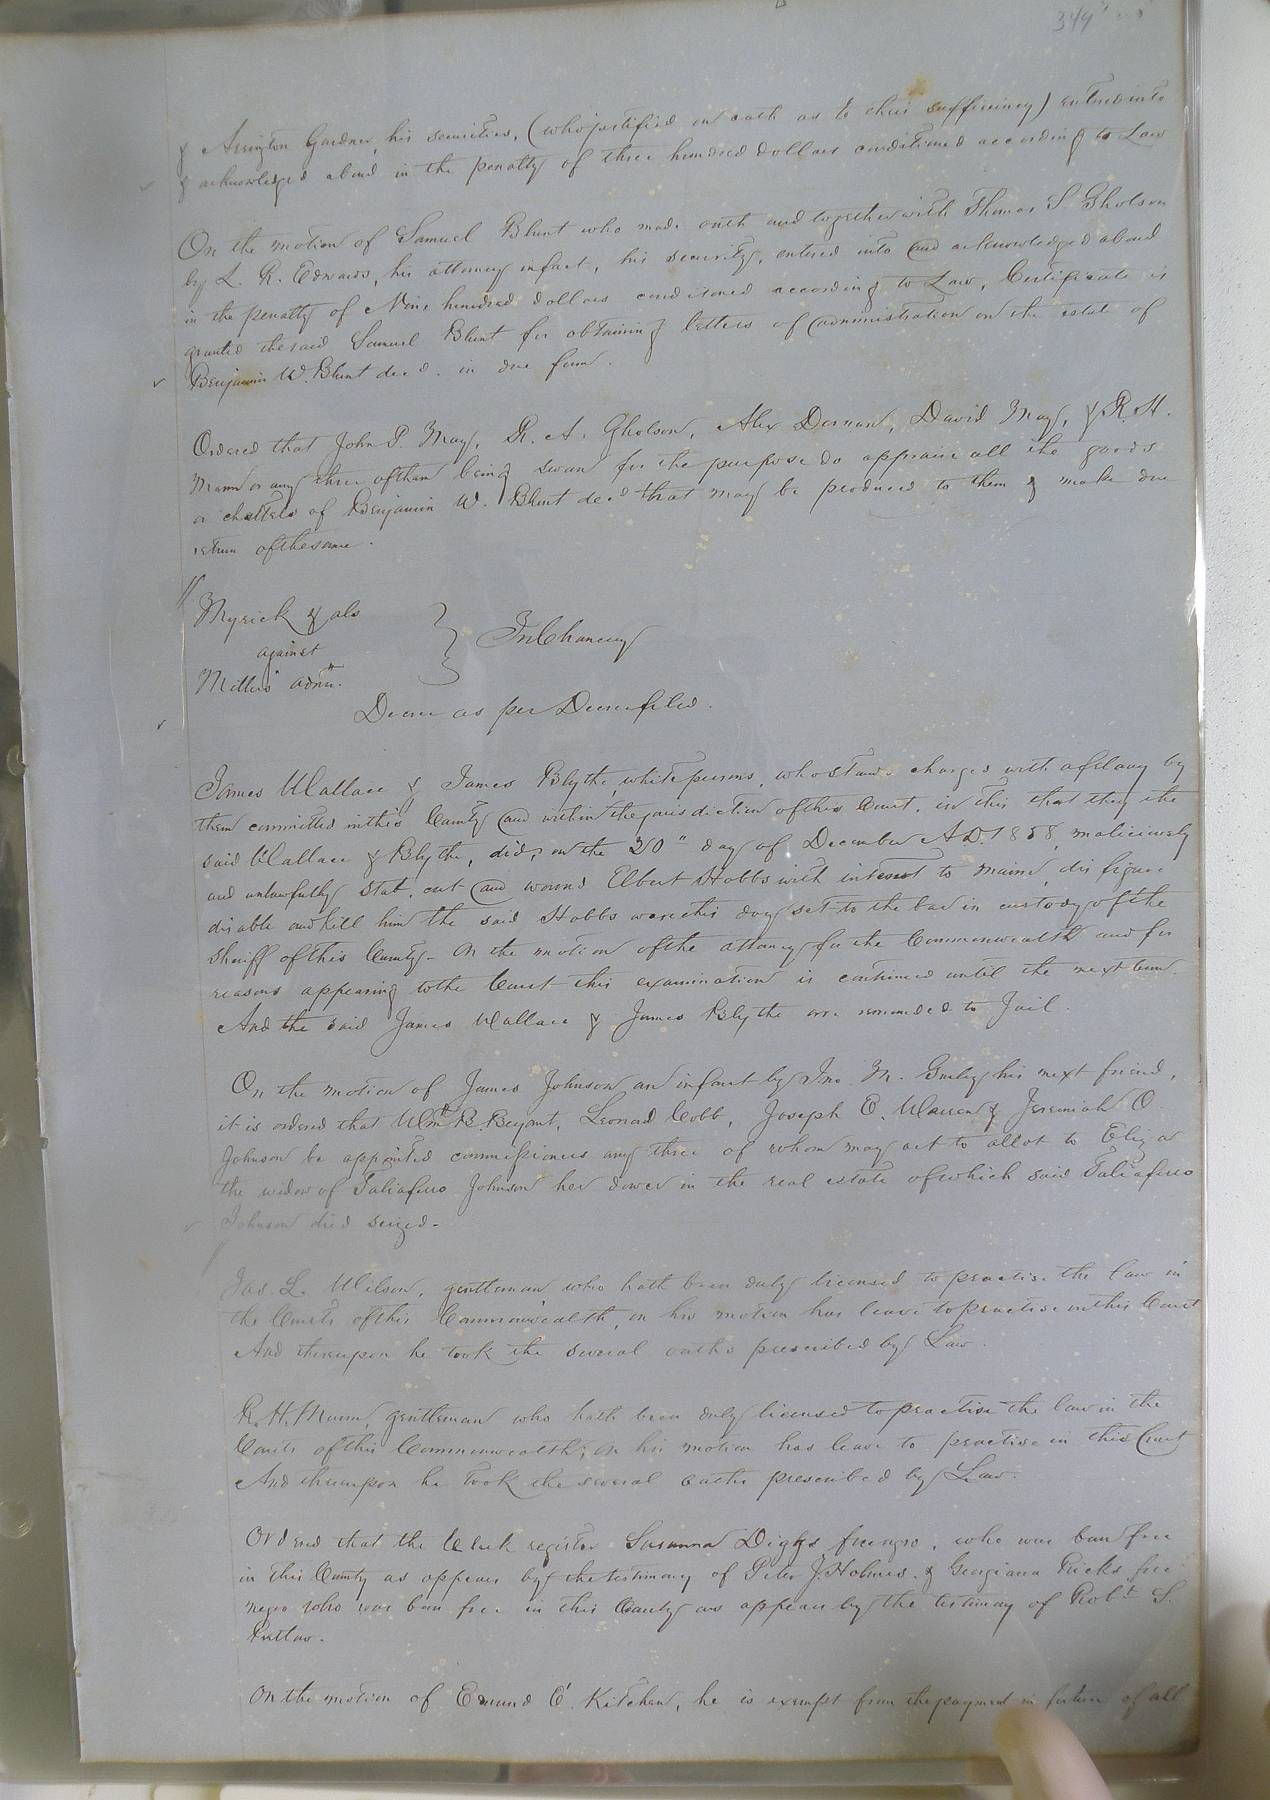 349
& Arrington Gardner, his securities, (who justified on oath as to their sufficiency) entered into
& acknowledged a bond in the penalty of three hundred dollars conditioned according to Law
On the motion of Samuel Blunt who made oath and together with Thomas S. Gholson
by L. R. Edwards, his attorney in fact, his security, entered into and acknowledged a bond
in the penalty of Nine hundred dollars conditioned according to Law, Certificate is
granted the said Samuel Blunt for obtaining letters of administration on the estate of
Benjamin W. Blunt decd. in due form.
Ordered that John P. May, R. A. Gholson, Alex Dorman, David May, & R. H.
Mann or any three of them being sworn for the purpose do appraise all the goods
or chattels of Benjamin W. Blunt decd that may be produced to them & make due
return of the same.
Myrick & als
against
admr.
In Chancery
Decree as per Decree filed.
James Wallace & James Blythe, white persons, who stand charged with a felony by
them committed in this County and within the jurisdiction of this Court, in this that they the
said Wallace & Blythe, did, on the 20" day of December A.D. 1858, maliciously
and unlawfully stab, cut and wound Elbert Hobbs with intent to maim, disfigure
disable and kill him the said Hobbs were this day set to the bar in custody of the
Sheriff of this County - On the motion of the attorney for the Commonwealth and for
reasons appearing to the Court this examination is continued until the next term.
And the said James Wallace & James Blythe are remanded to Jail.
On the motion of James Johnson an infant by Jno. M. his next friend,
it is ordered that Wm. B. Bryant, Leonard Cobb, Joseph E. Warren & Jeremiah O
Johnson be appointed commissioners any three of whom may act to allot to Eliza
the widow of Taliaferro Johnson her dower in the real estate of which said Taliaferro
Johnson died seized -
Jas. L. Wilson, gentleman who hath been duly licensed to practise the law in
the Courts of this Commonwealth, on his motion has leave to practise in this Court
And thereupon he took the several oaths prescribed by Law.
R. H. Mann, gentleman who hath been duly licensed to practise the law in the
Courts of this Commonwealth; on his motion has leave to practise in this Court
And thereupon he took the several oaths prescribed by Law.
Ordered that the Clerk register Susanna Diggs free negro, who was born free
in this County as appears by the testimony of Peter J. Holmes. & Georgiana Ricks free
negro who was born free in this County as appears by the testimony of Robt. S.
On the motion of Edmund E. Kitchen, he is exempt from the payment in future of all